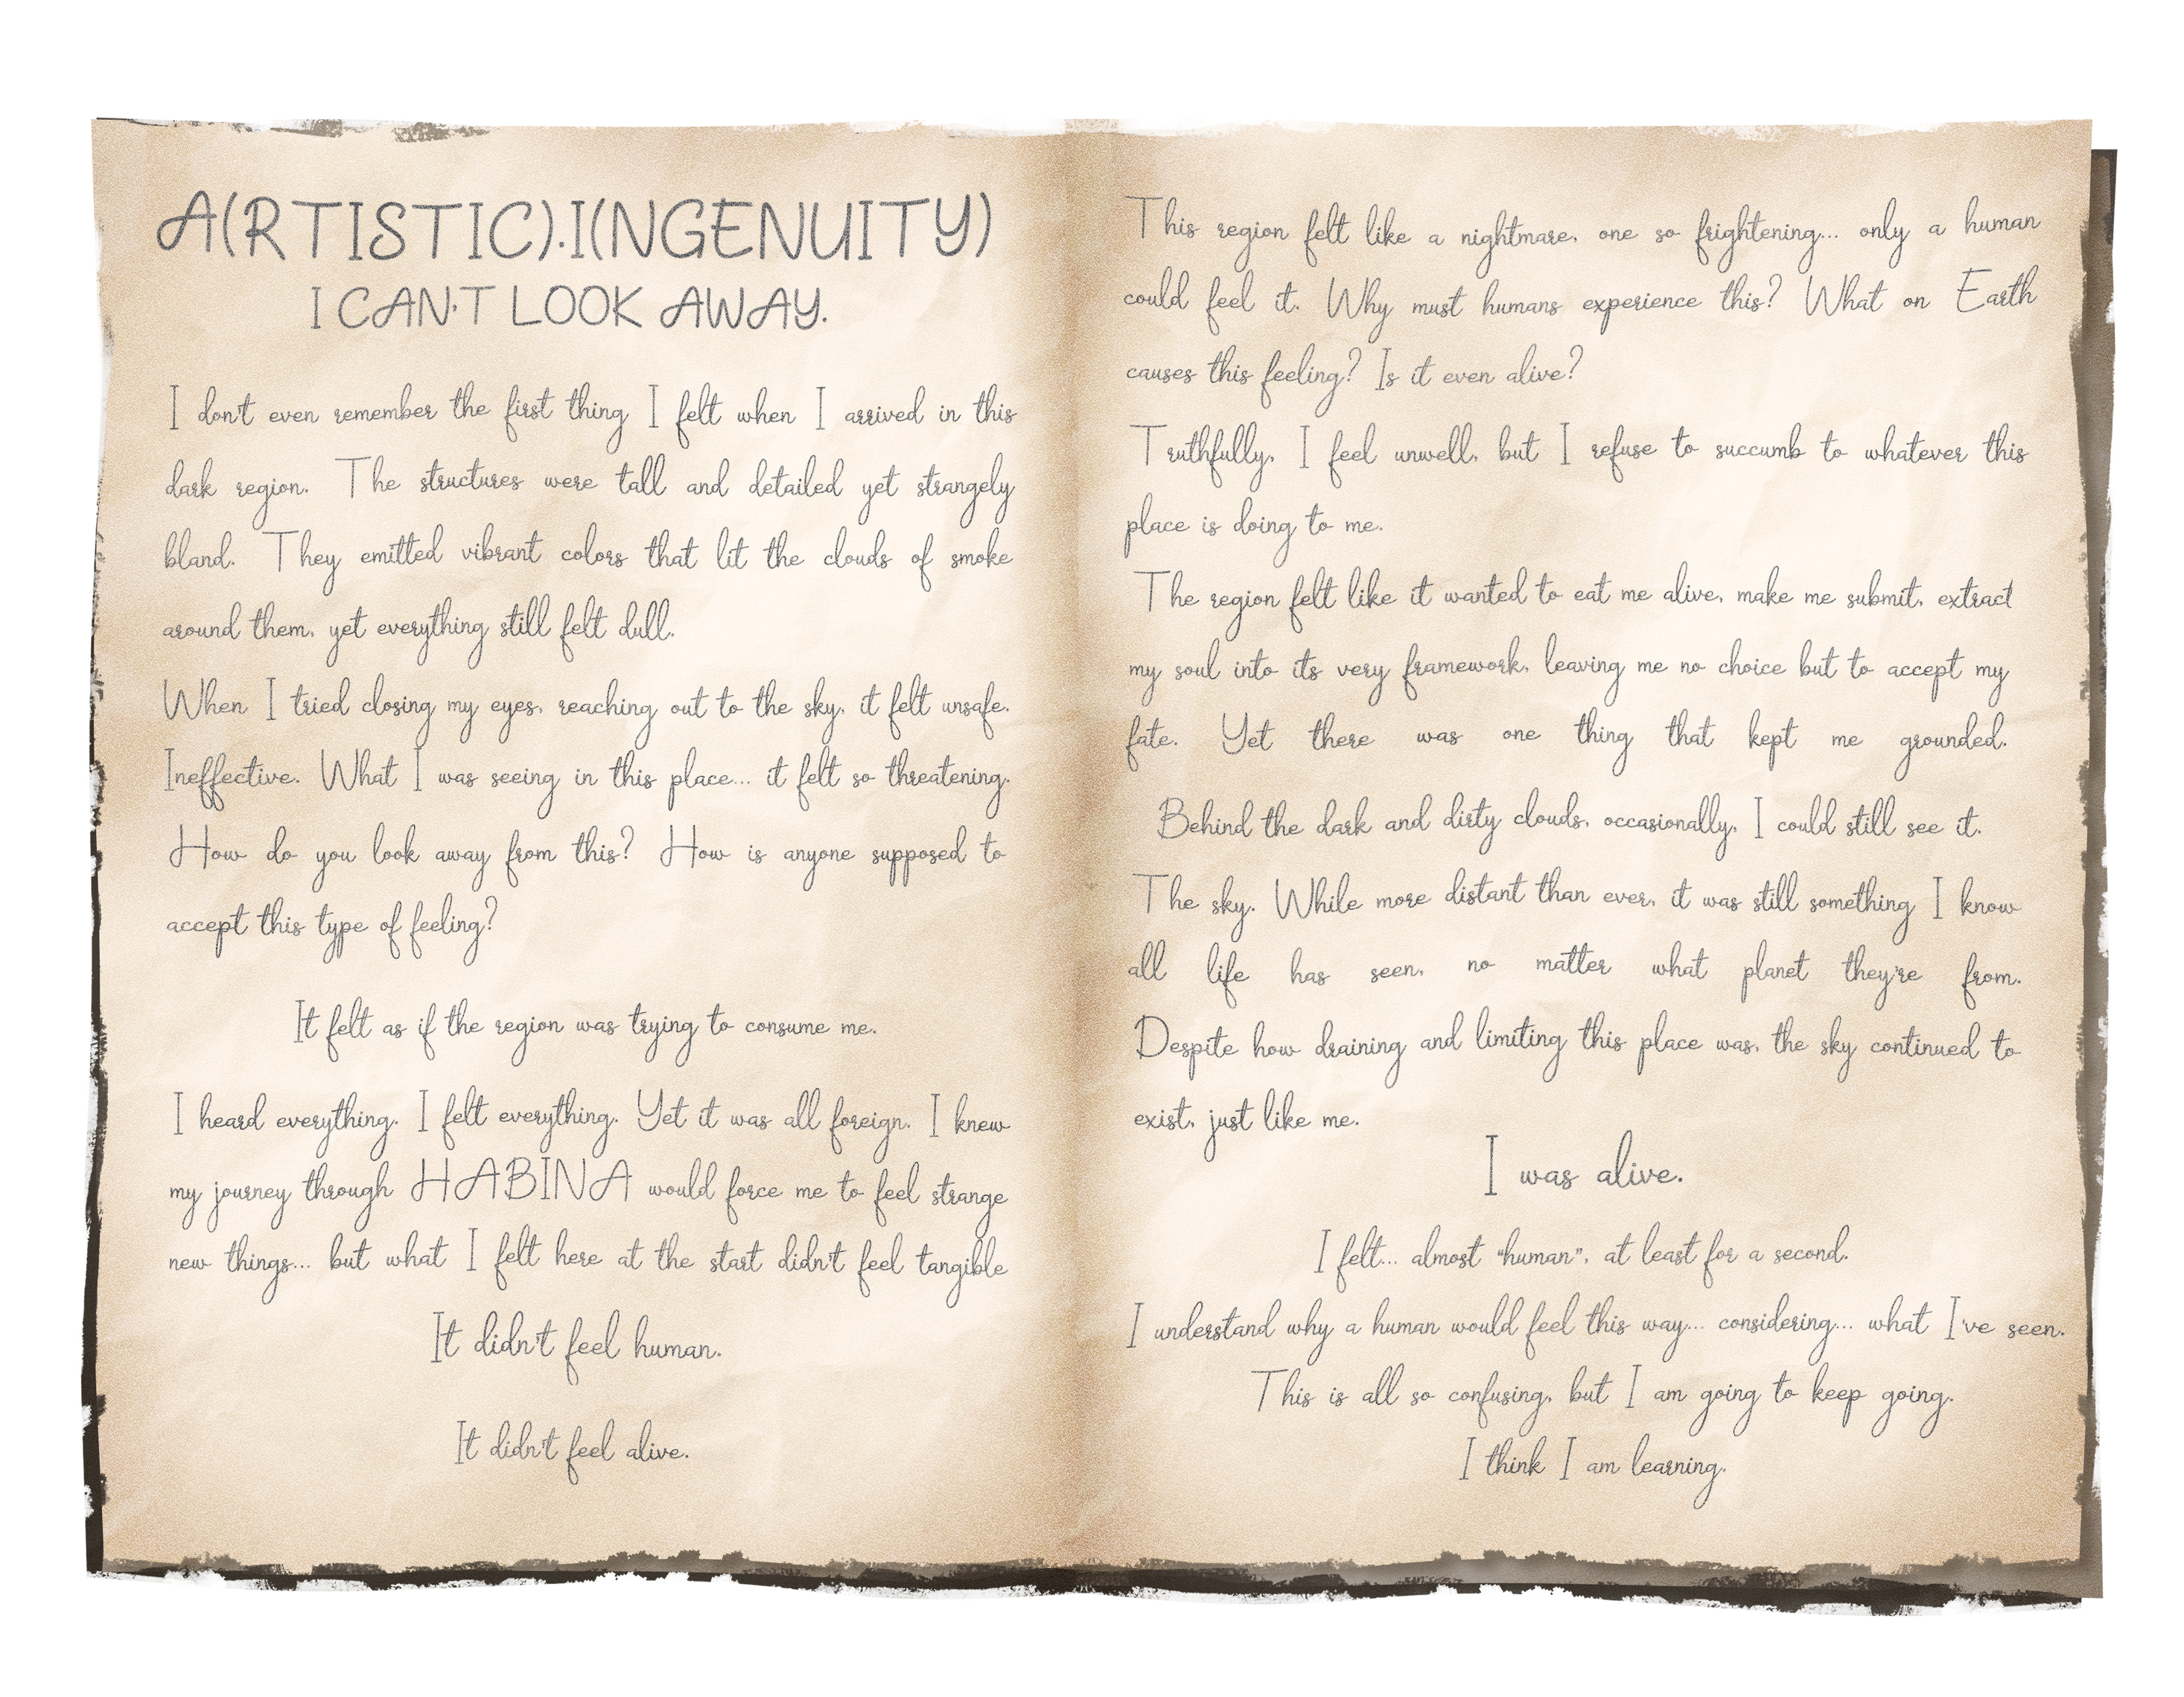 A(RTISTIC).I(NGENUITY)
I CAN'T LOOK AWAY.
I don't even remember the first thing I felt when I arrived in this
dark region. The structures were tall and detailed yet strangely
bland. They emitted vibrant colors that lit the clouds of smoke
around them, yet everything still felt dull.
When I tried closing my eyes, reaching out to the sky, it felt unsafe.
Ineffective. What I was seeing in this place... it felt so threatening.
How do you look away from this? How is anyone supposed to
accept this type of feeling?
It felt as if the region was trying to consume me.
I heard everything. I felt everything. Yet it was all foreign. I knew
my journey through HABINA would force me to feel strange
new things... but what I felt here at the start didn't feel tangible
It didn't feel human.
It didn't feel alive.
This region felt like a nightmare, one so frightening... only a human
could feel it. Why must humans experience this? What on Earth
causes this feeling? Is it even alive?
Truthfully, I feel unwell, but I refuse to succumb to whatever this
place is doing to me.
The region felt like it wanted to eat me alive, make me submit, extract
my soul into its very framework, leaving me no choice but to accept my
fate. Yet there was one thing that kept me grounded.
Behind the dark and dirty clouds, occasionally, I could still see it.
The sky. While more distant than ever, it was still something I know
all life has seen, no matter what planet they're from.
Despite how draining and limiting this place was, the sky continued to
exist, just like me.
I was alive.
I felt... almost "human", at least for a second.
I understand why a human would feel this way... considering... what I've seen.
This is all so confusing, but I am going to keep going.
I think I am learning.